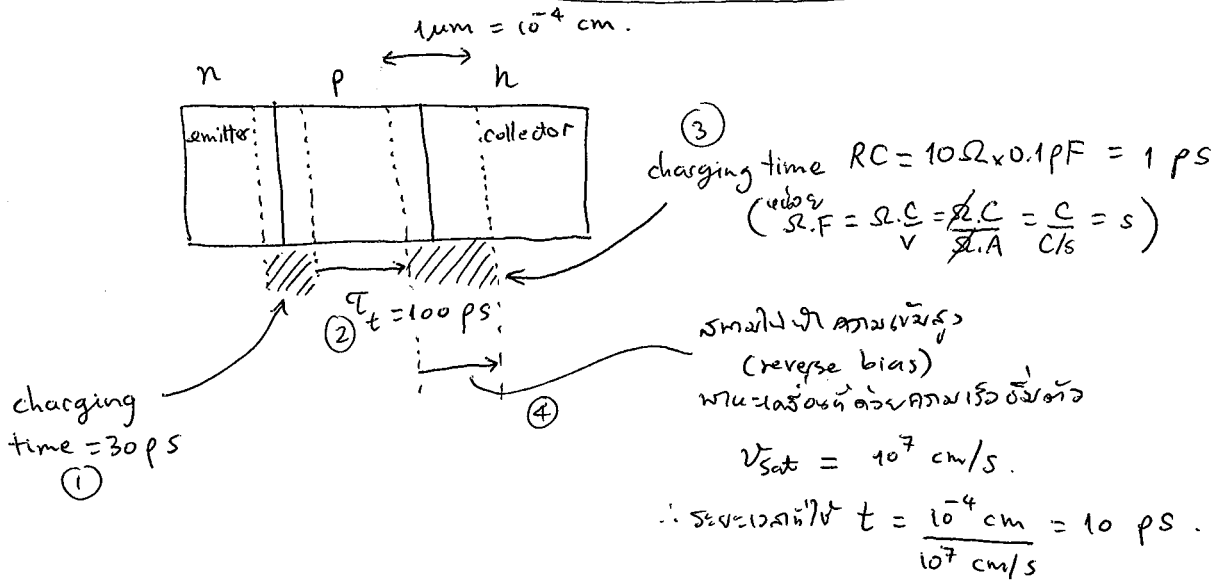 1µm = 10⁻⁴ cm.
n p n
emitter collector
③
charging time RC = 10Ω×0.1pF = 1 ps
(หน่วย Ω.F = Ω.C/V = Ω.C/Ω.A = C/C/s = s)
② τt = 100 ps
④
charging
time = 30ps
①
สนามไฟฟ้าความเข้มสูง
(reverse bias)
พาหะเคลื่อนที่ด้วยความเร็วอิ่มตัว
Vsat = 10⁷ cm/s.
∴ ระยะเวลาที่ใช้ t = 10⁻⁴ cm / 10⁷ cm/s = 10 ps.